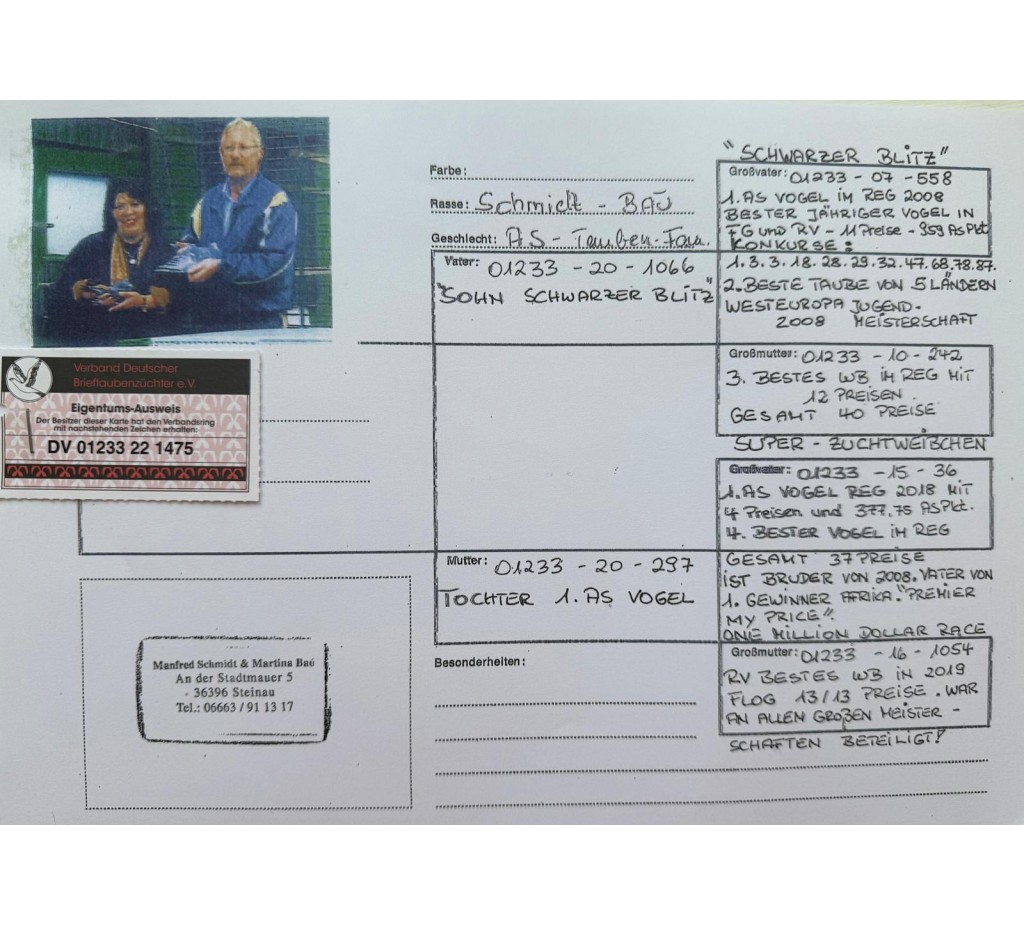 Farbe:
Rasse: Schmidt - BAÚ
Geschlecht: AS - Tauben - Fam.
Vater: 01233 - 20 - 1066
"SOHN SCHWARZER BLITZ"
"SCHWARZER BLITZ"
Großvater: 01233 - 07 - 558
1. AS VOGEL IM REG 2008
BESTER JÄHRIGER VOGEL IN
FG und RV - 11 Preise - 959 As Pkt
KONKURSE:
1. 3. 3. 18. 28. 29. 32. 47. 68. 78. 87.
2. BESTE TAUBE VON 5 LÄNDERN
WESTEUROPA JUGEND-
2008 MEISTERSCHAFT
Großmutter: 01233 - 10 - 242
3. BESTES WB IM REG MIT
12 PREISEN.
GESAMT 40 PREISE
SUPER - ZUCHTWEIBCHEN
Verband Deutscher
Brieftaubenzüchter e.V.
Eigentums-Ausweis
Der Besitzer dieser Karte hat den Verbandsring
mit nachstehenden Zeichen erhalten:
DV 01233 22 1475
Großvater: 01233 - 15 - 36
1. AS VOGEL REG 2018 MIT
4 Preisen und 377,75 AS Pkt.
4. BESTER VOGEL IM REG
GESAMT 37 PREISE
IST BRUDER VON 2008. VATER VON
1. GEWINNER AFRIKA. "PREMIER
MY PRICE".
ONE MILLION DOLLAR RACE
Mutter: 01233 - 20 - 297
TOCHTER 1. AS VOGEL
Großmutter: 01233 - 16 - 1054
RV BESTES WB IN 2019
FLOG 13/13 PREISE. WAR
AN ALLEN GROßEN MEISTER -
SCHAFTEN BETEILIGT!
Besonderheiten:
Manfred Schmidt & Martina Baú
An der Stadtmauer 5
36396 Steinau
Tel.: 06663 / 91 13 17